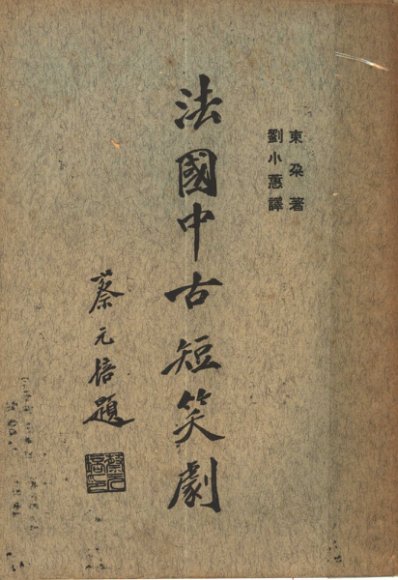 東朶著
劉小蕙譯
法國中古短笑劇
蔡元培題